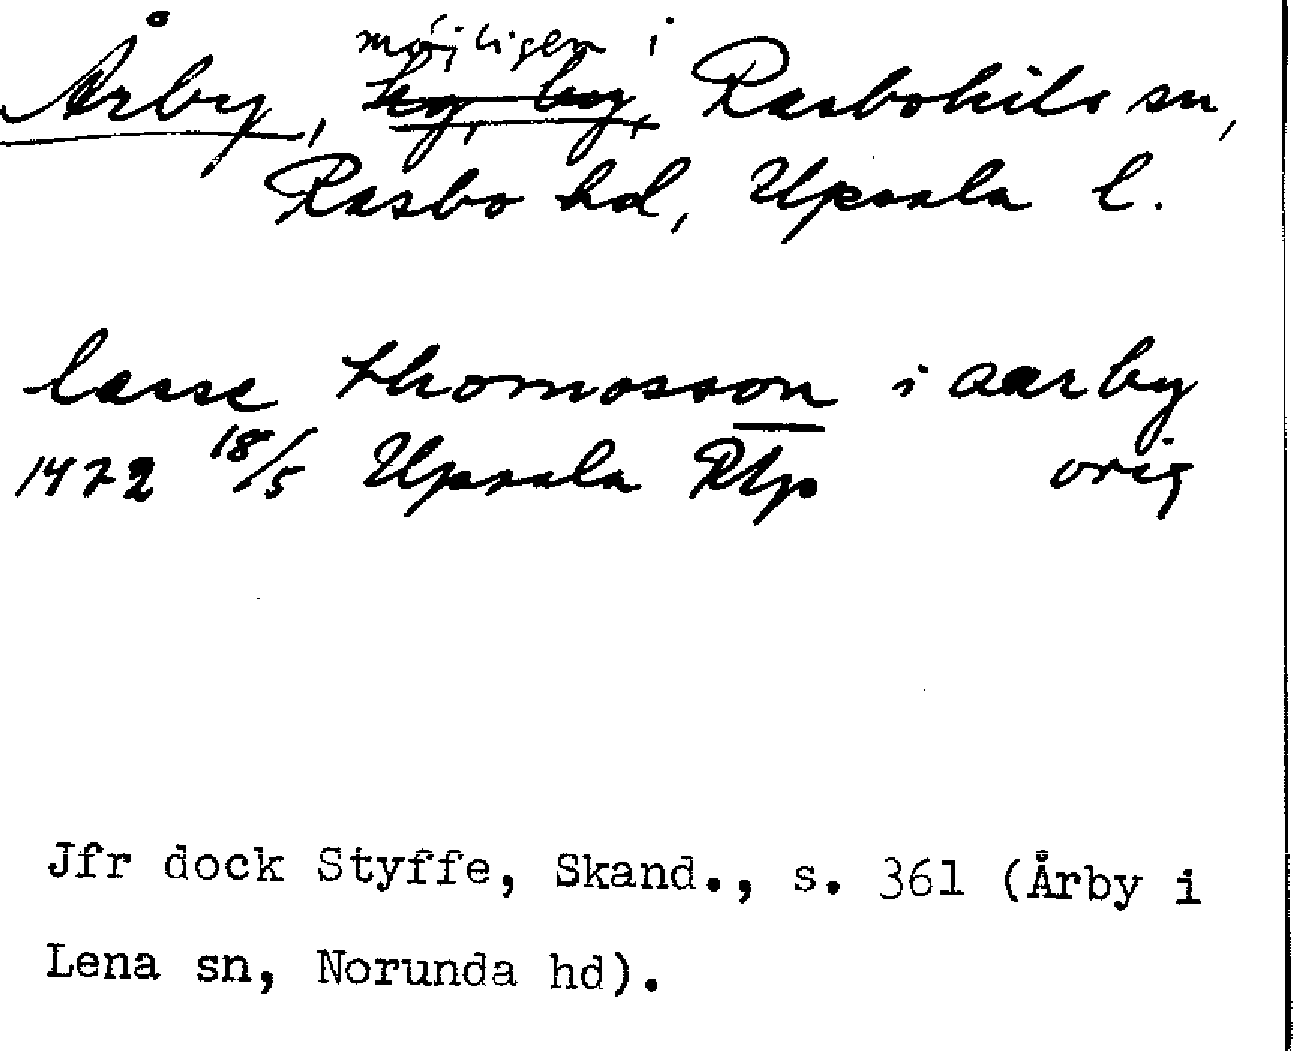 möjligen i
Årby, hg, by, Rasbokils sn,
Rasbo hd, Upsala l.
lasse thomosson i aarby
1472 18/5 Upsala RAp orig
Jfr dock Styffe, Skand., s. 361 (Årby i
Lena sn, Norunda hd).